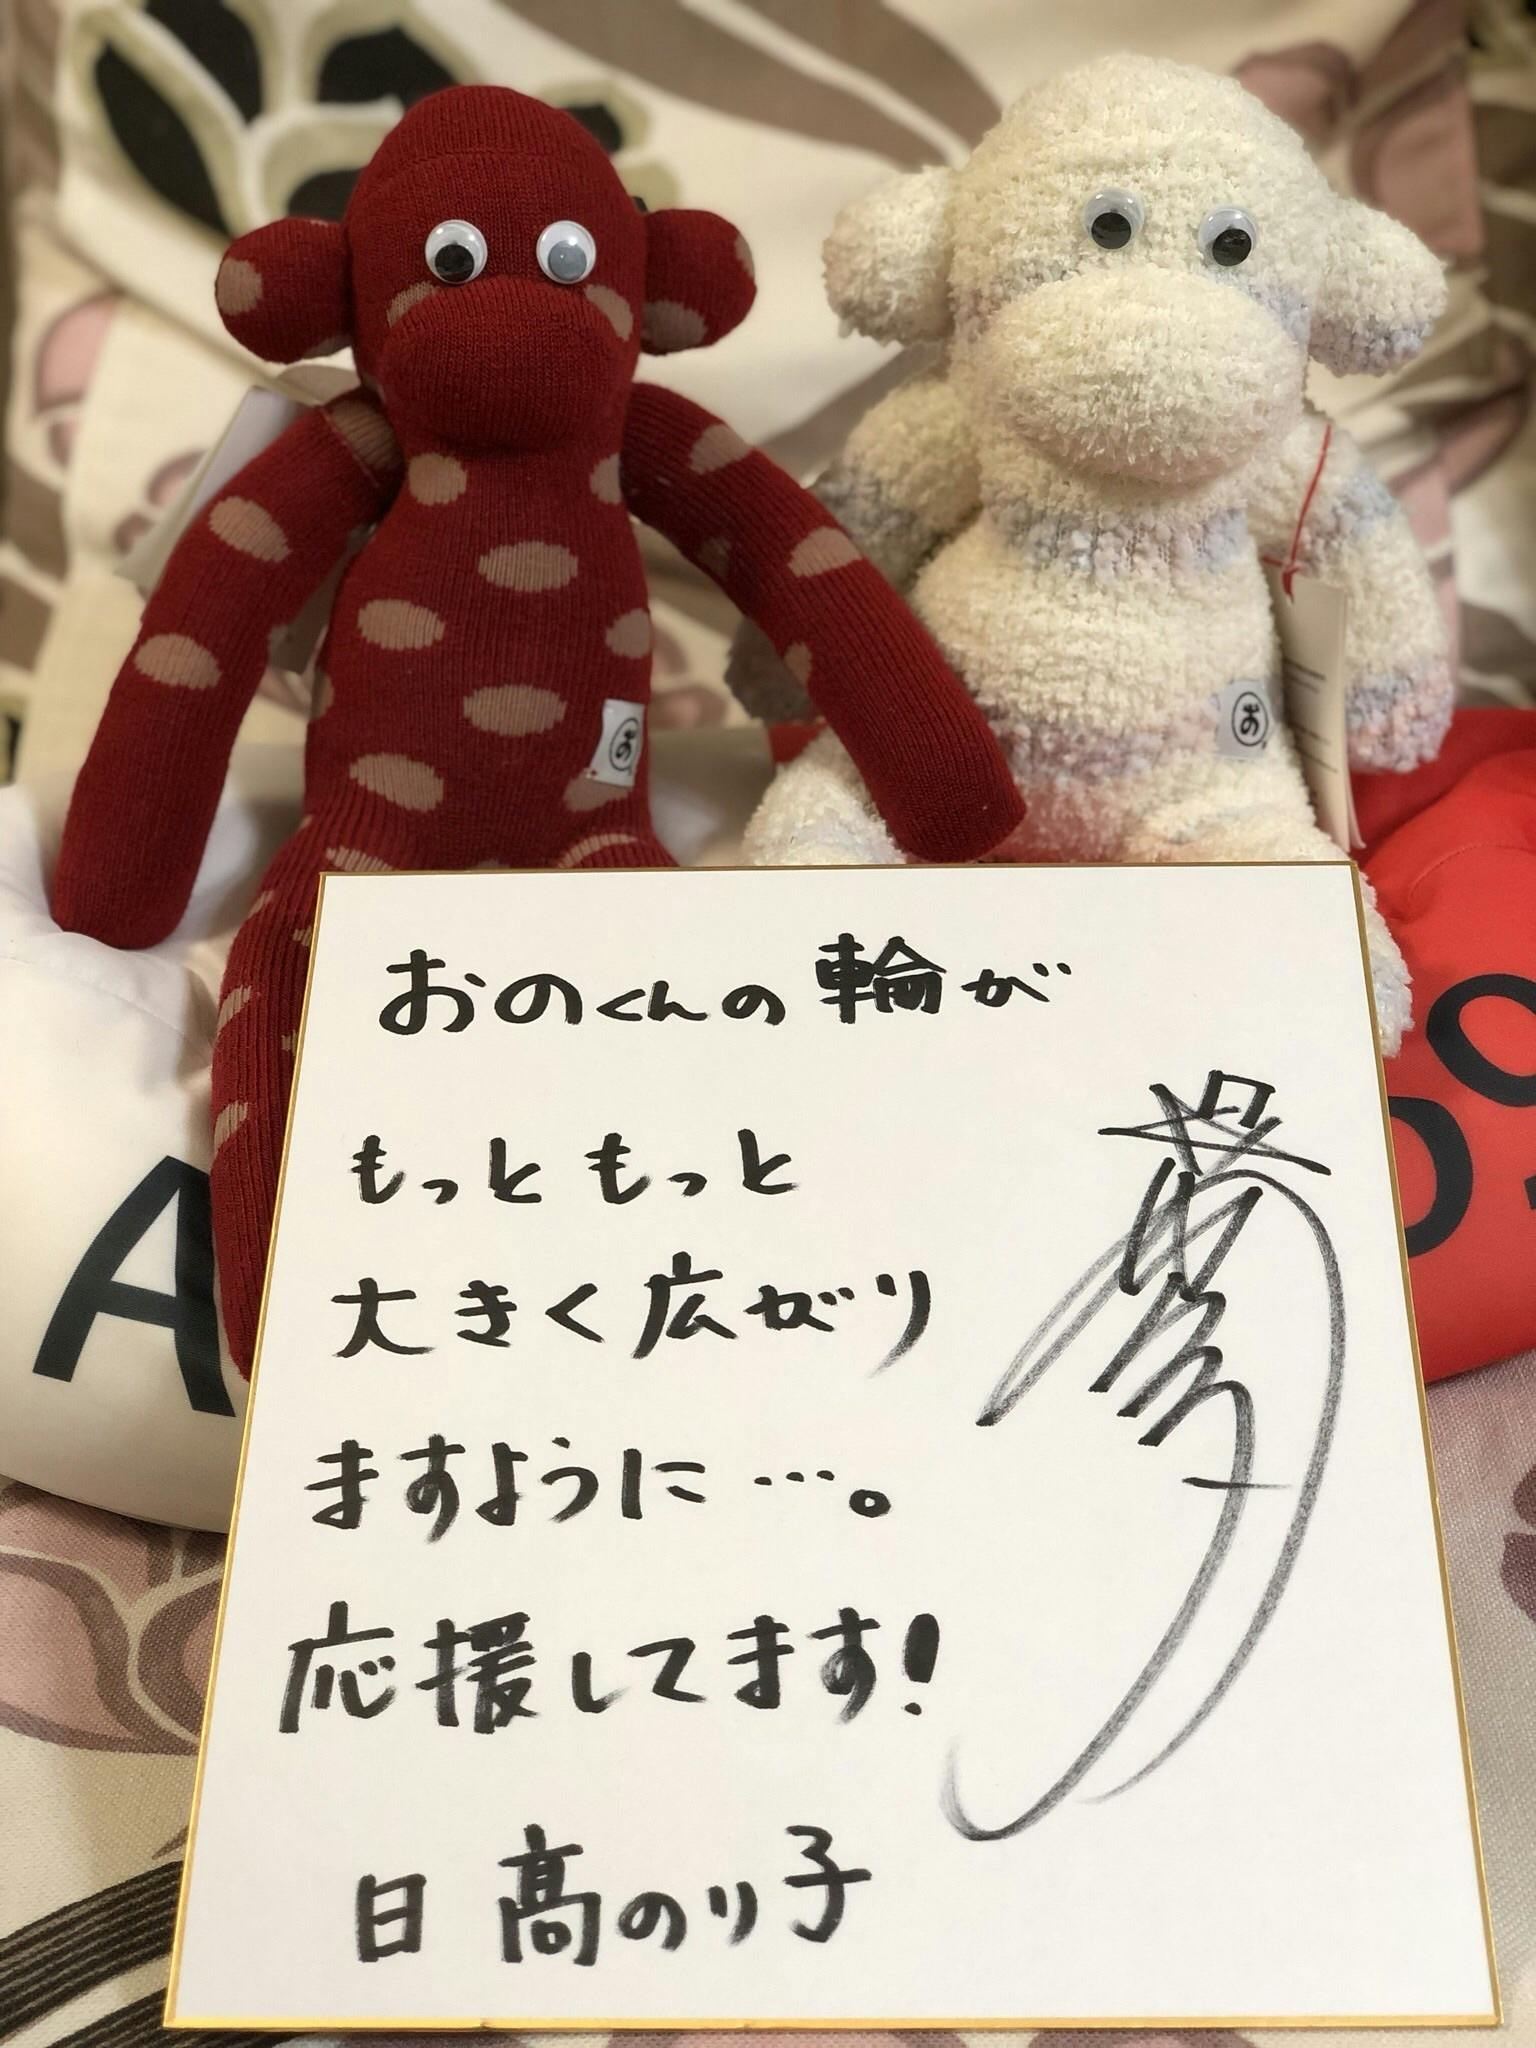 おのくんの輪が
もっともっと
大きく広がり
ますように…。
応援してます!
日髙のり子
お
お
A